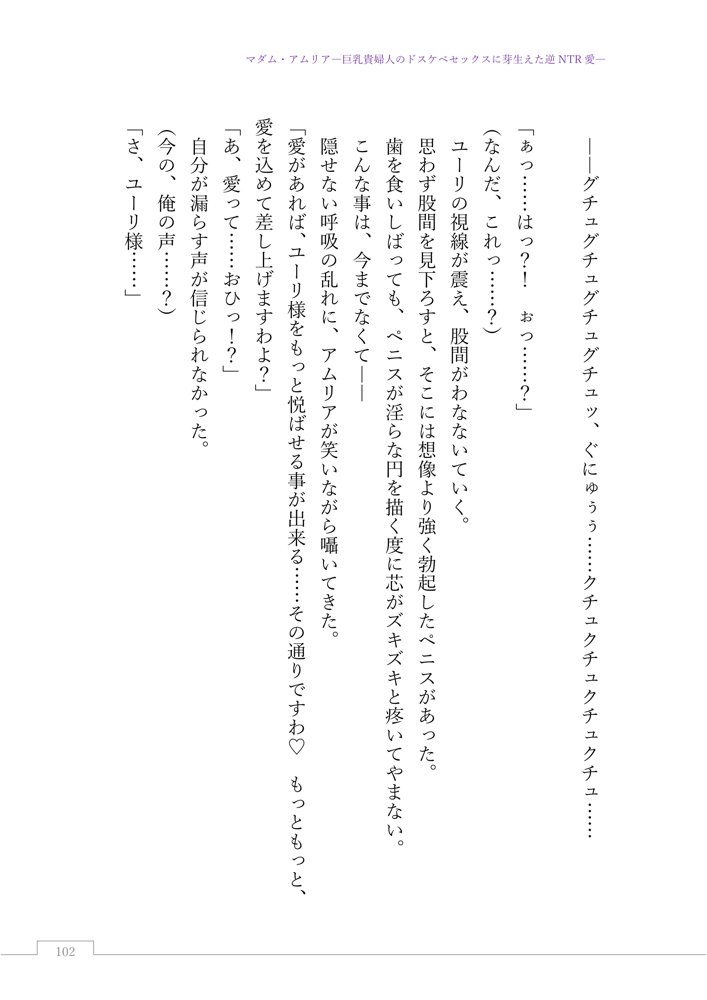 マダム・アムリア―巨乳貴婦人のドスケベセックスに芽生えた逆NTR愛―
――グチュグチュグチュグチュッ、ぐにゅぅぅ……クチュクチュクチュクチュ……
「ぁっ……はっ？！　ぉっ……？」
(なんだ、これっ……？)
ユーリの視線が震え、股間がわなないていく。
思わず股間を見下ろすと、そこには想像より強く勃起したペニスがあった。
歯を食いしばっても、ペニスが淫らな円を描く度に芯がズキズキと疼いてやまない。
こんな事は、今までなくて――
隠せない呼吸の乱れに、アムリアが笑いながら囁いてきた。
「愛があれば、ユーリ様をもっと悦ばせる事が出来る……その通りですわ♡　もっともっと、
愛を込めて差し上げますわよ？」
「あ、愛って……おひっ！？」
自分が漏らす声が信じられなかった。
(今の、俺の声……？)
「さ、ユーリ様……」
102